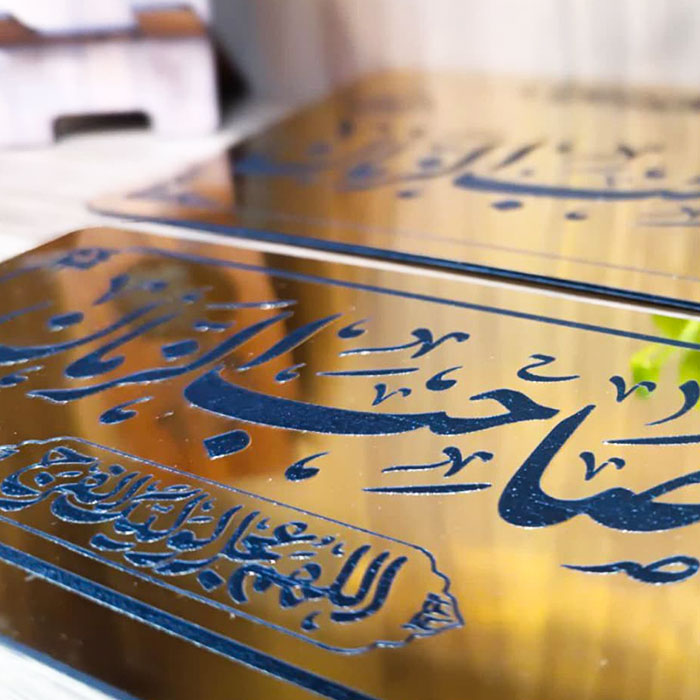 صاحب الزمان
اللهم عجل لولیک الفرج